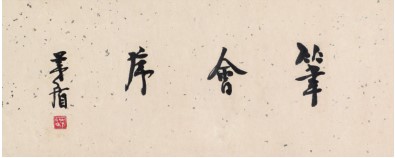 筆會序
茅盾